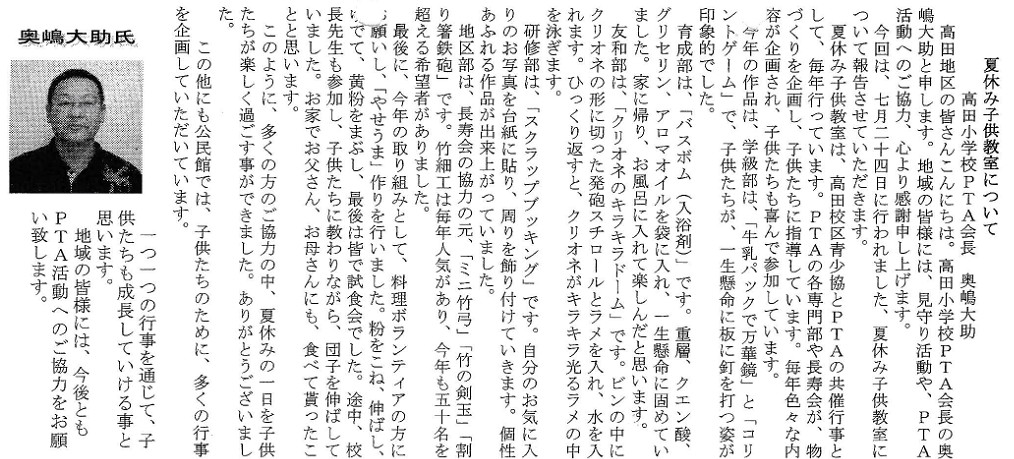 夏休み子供教室について
高田小学校ＰＴＡ会長　奥嶋大助
高田地区の皆さんこんにちは。高田小学校ＰＴＡ会長の奥
嶋大助と申します。地域の皆様には、見守り活動や、ＰＴＡ
活動へのご協力、心より感謝申し上げます。
今回は、七月二十四日に行われました、夏休み子供教室に
ついて報告させていただきます。
夏休み子供教室は、高田校区青少協とＰＴＡの共催行事と
して、毎年行っています。ＰＴＡの各専門部や長寿会が、物
づくりを企画し、子供たちに指導しています。毎年色々な内
容が企画され、子供たちも喜んで参加しています。
今年の作品は、学級部は、「牛乳パックで万華鏡」と「コリ
ントゲーム」で、子供たちが、一生懸命に板に釘を打つ姿が
印象的でした。
育成部は、「バスボム（入浴剤）」です。重層、クエン酸、
グリセリン、アロマオイルを袋に入れ、一生懸命に固めてい
ました。家に帰り、お風呂に入れて楽しんだと思います。
友和部は、「クリオネのキラキラドーム」です。ビンの中に
クリオネの形に切った発砲スチロールとラメを入れ、水を入
れます。ひっくり返すと、クリオネがキラキラ光るラメの中
を泳ぎます。
研修部は、「スクラップブッキング」です。自分のお気に入
りのお写真を台紙に貼り、周りを飾り付けていきます。個性
あふれる作品が出来上がっていました。
地区部は、長寿会の協力の元、「ミニ竹弓」「竹の剣玉」「割
り箸鉄砲」です。竹細工は毎年人気があり、今年も五十名を
超える希望者がありました。
最後に、今年の取り組みとして、料理ボランティアの方に
願いし、「やせうま」作りを行いました。粉をこね、伸ばし、
でて、黄粉をまぶし、最後は皆で試食会でした。途中、校
長先生も参加し、子供たちに教わりながら、団子を伸ばして
いました。お家でお父さん、お母さんにも、食べて貰ったこ
とと思います。
このように、多くの方のご協力の中、夏休みの一日を子供
たちが楽しく過ごす事ができました。ありがとうございまし
た。
この他にも公民館では、子供たちのために、多くの行事
を企画していただいています。
一つ一つの行事を通じて、子
供たちも成長していける事と
思います。
地域の皆様には、今後とも
ＰＴＡ活動へのご協力をお願
い致します。
奥嶋大助氏